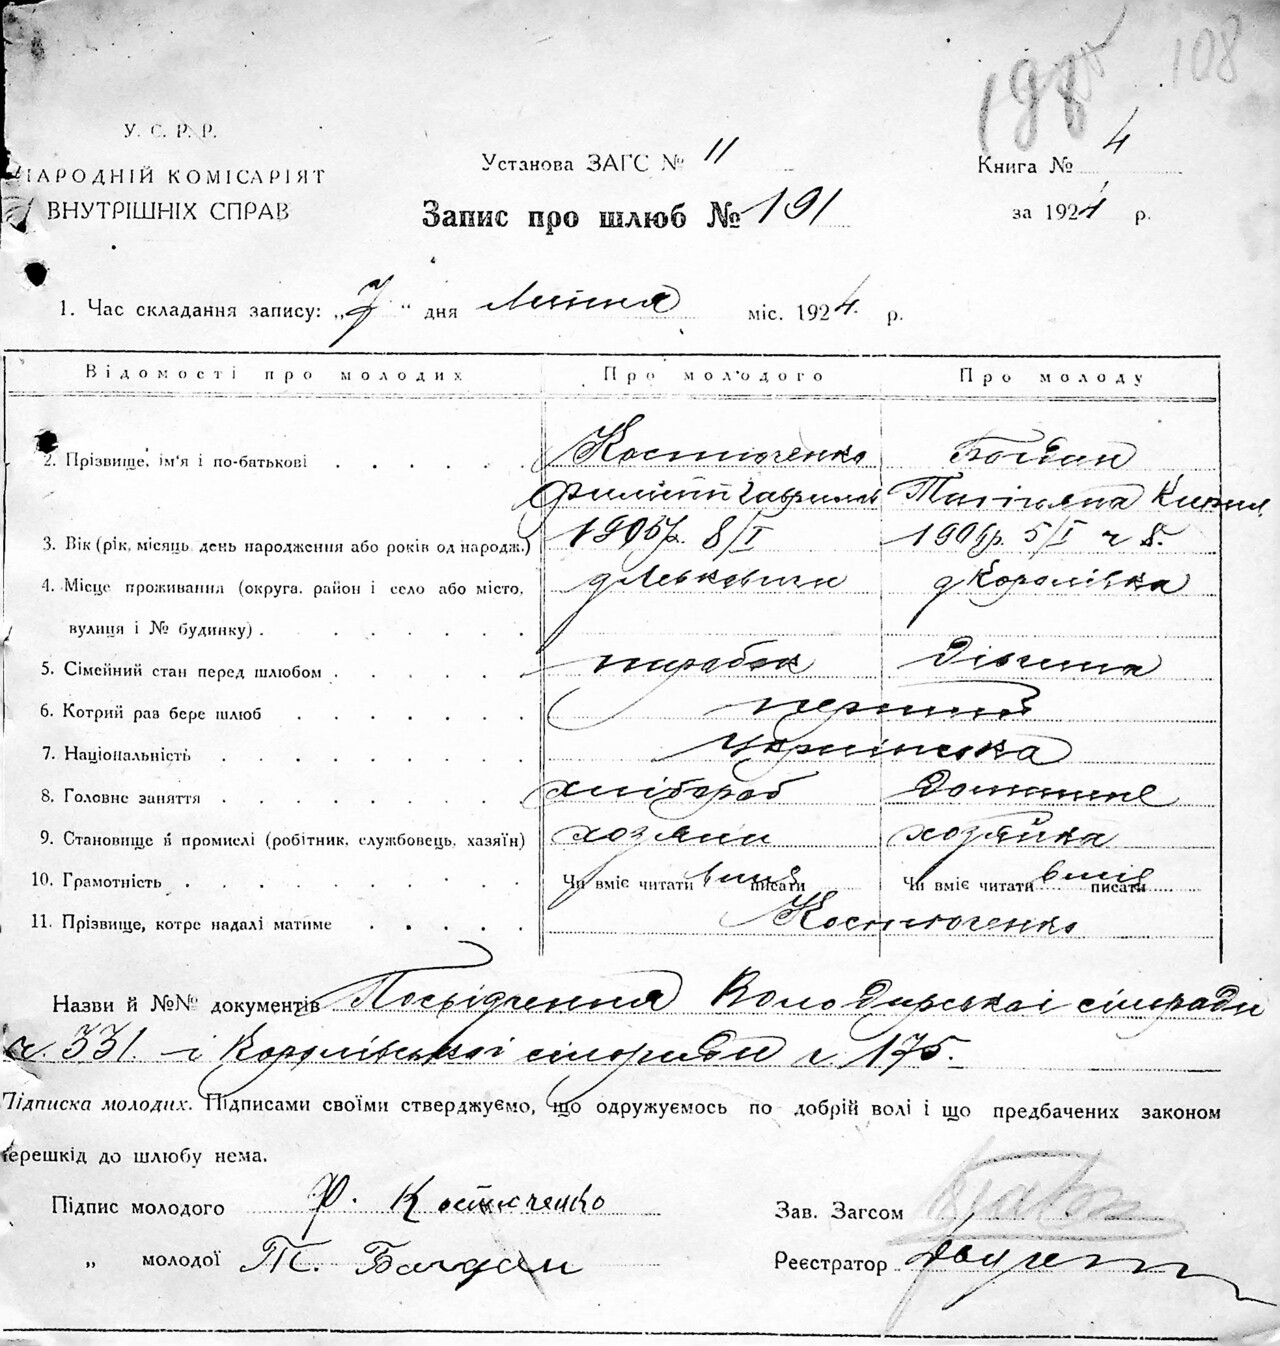 198 108
У. С. Р. Р.
НАРОДНІЙ КОМІСАРІЯТ
ВНУТРІШНІХ СПРАВ
Установа ЗАГС № 11
Книга № 4
Запис про шлюб № 191
за 1924 р.
1. Час складання запису: „7" дня Липня міс. 1924 р.
Відомості про молодих Про молодого Про молоду
2. Прізвище, ім'я і по-батькові Костюченко Богдан
Филипп Гаврилов Тагіяна Кирил
3. Вік (рік, місяць, день народження або років од народж.) 8/I 5/I
4. Місце проживання (округа, район і село або місто, д Левковичи д Королівка
вулиця і № будинку)
5. Сімейний стан перед шлюбом парабок дівчина
6. Котрий раз бере шлюб перший
7. Національність Українська
8. Головне заняття хлібороб Домашнє
9. Становище в промислі (робітник, службовець, хазяїн) хозяин хозяйка
10. Грамотність Чи вміє читати вміє писати Чи вміє читати вміє писати
11. Прізвище, котре надалі матиме Костюченко
Назви й №№ документів Посвідчення Володарської сільради
ч. 331. і Королівської сільради ч. 175.
Підписка молодих. Підписами своїми стверджуємо, що одружуємось по добрій волі і що предбачених законом
перешкід до шлюбу нема.
Підпис молодого Ф. Костюченко
Зав. Загсом
„ молодої Т. Богдан
Реєстратор